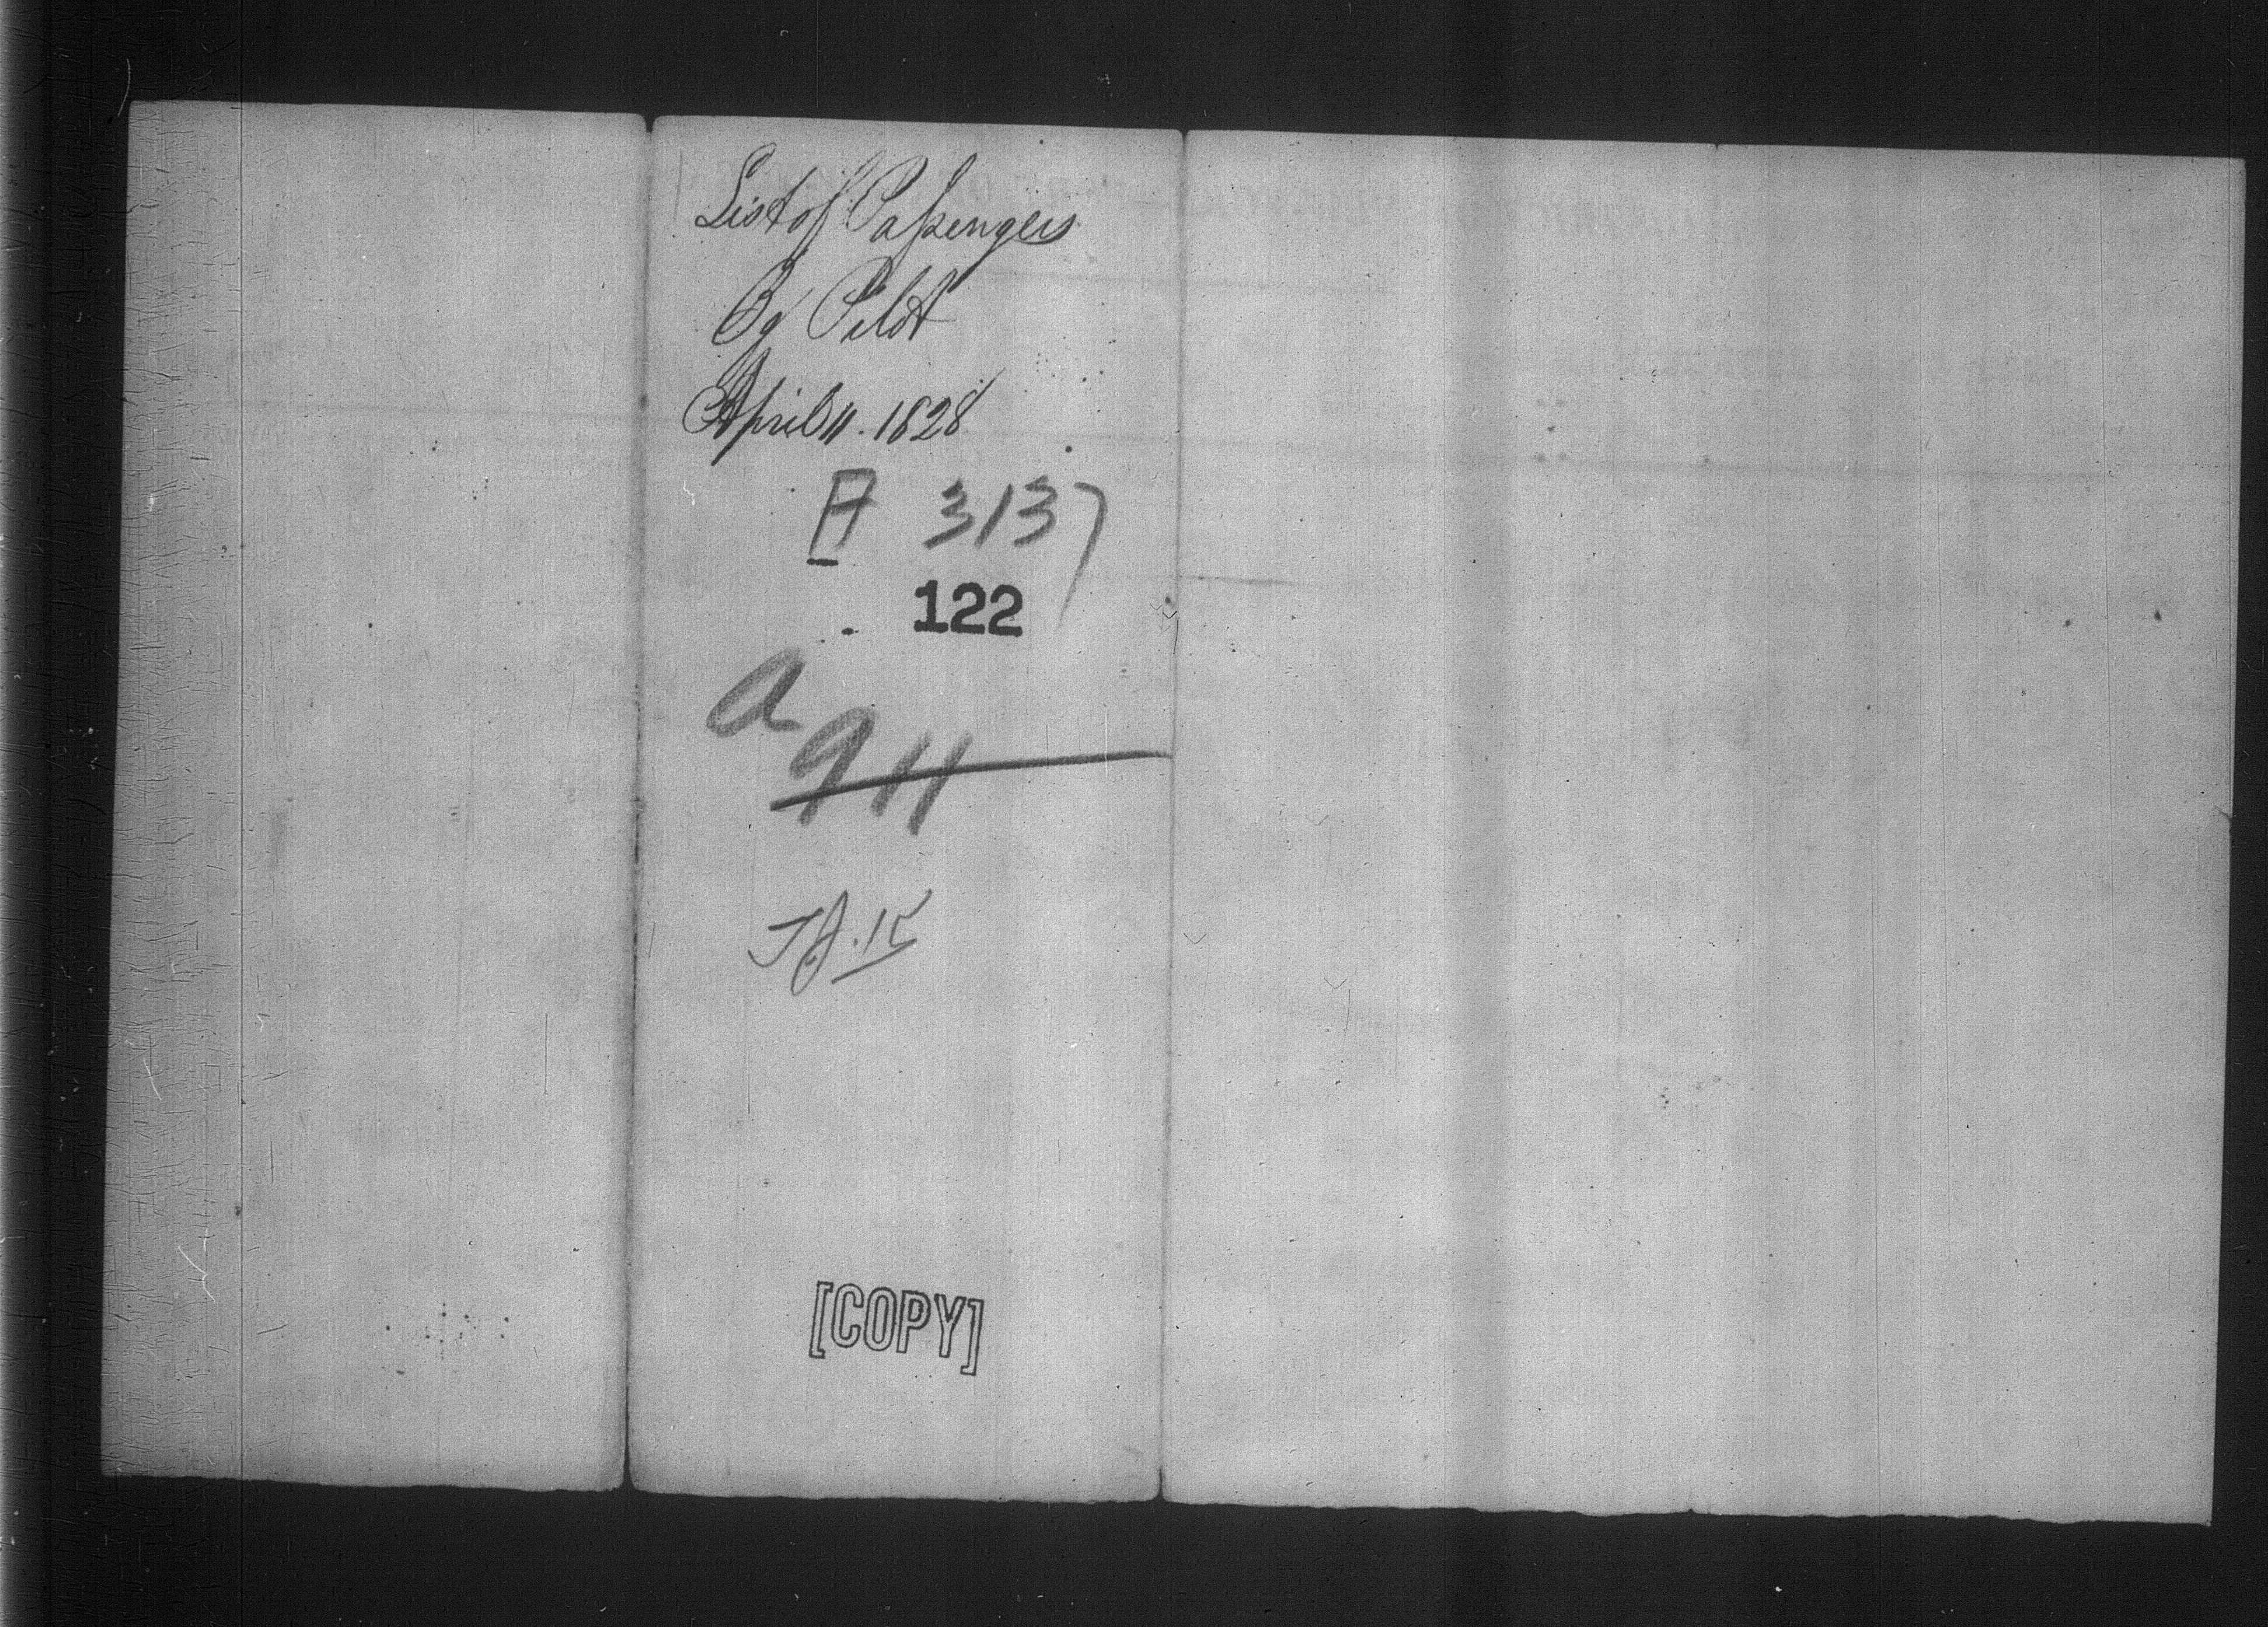 List of Passengers
Bg Pilot
April 11. 1828
A 3137
122
a
911
[COPY]